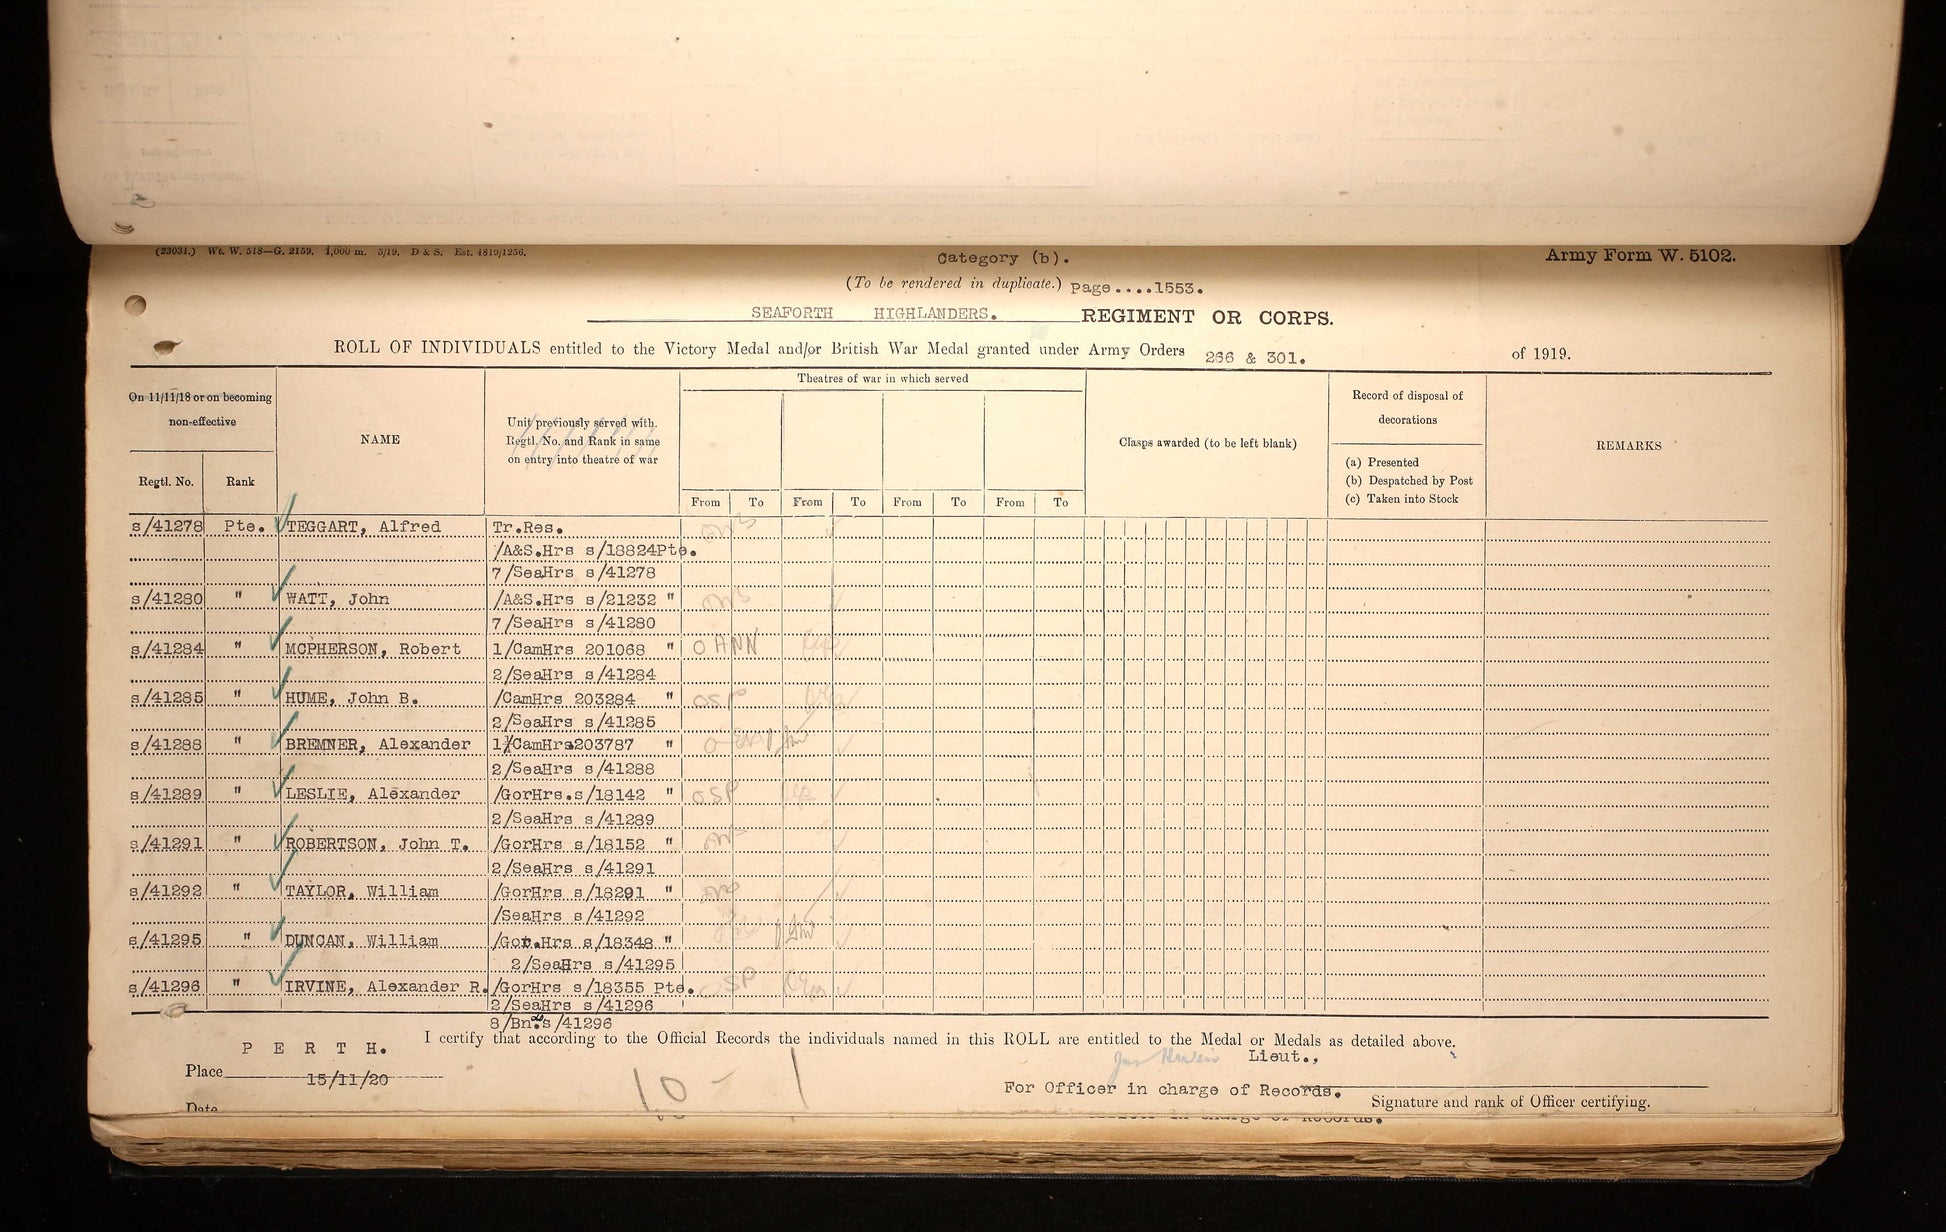 (23031.) Wt. W. 518—G. 2159. 1,000 m. 5/19. D & S. Est. 4819/1256.
Category (b).
Army Form W. 5102.
(To be rendered in duplicate.) page....1553.
SEAFORTH HIGHLANDERS. REGIMENT OR CORPS.
ROLL OF INDIVIDUALS entitled to the Victory Medal and/or British War Medal granted under Army Orders 266 & 301. of 1919.
On 11/11/18 or on becoming non-effective
Regtl. No.
Rank
NAME
Unit previously served with.
Regtl. No. and Rank in same
on entry into theatre of war
Theatres of war in which served
From To From To From To From To
Clasps awarded (to be left blank)
Record of disposal of
decorations
(a) Presented
(b) Despatched by Post
(c) Taken into Stock
REMARKS
s/41278 Pte. TEGGART, Alfred Tr.Res.
/A&S.Hrs s/18824Pte.
7/SeaHrs s/41278
s/41280 " WATT, John /A&S.Hrs s/21232 "
7/SeaHrs s/41280
s/41284 " MCPHERSON, Robert 1/CamHrs 201068 " O HNN
2/SeaHrs s/41284
s/41285 " HUME, John B. /CamHrs 203284 " OSP
2/SeaHrs s/41285
s/41288 " BREMNER, Alexander 1/CamHrs203787 "
2/SeaHrs s/41288
s/41289 " LESLIE, Alexander /GorHrs.s/18142 " OSP
2/SeaHrs s/41289
s/41291 " ROBERTSON, John T. /GorHrs s/18152 "
2/SeaHrs s/41291
s/41292 " TAYLOR, William /GorHrs s/18291 "
/SeaHrs s/41292
s/41295 " DUNCAN, William /Gor.Hrs s/18348 "
2/SeaHrs s/41295
s/41296 " IRVINE, Alexander R. /GorHrs s/18355 Pte. OSP
2/SeaHrs s/41296
8/Bn. s/41296
I certify that according to the Official Records the individuals named in this ROLL are entitled to the Medal or Medals as detailed above.
PERTH.
Lieut.,
Place 15/11/20
10 - 1
For Officer in charge of Records.
Signature and rank of Officer certifying.
Date